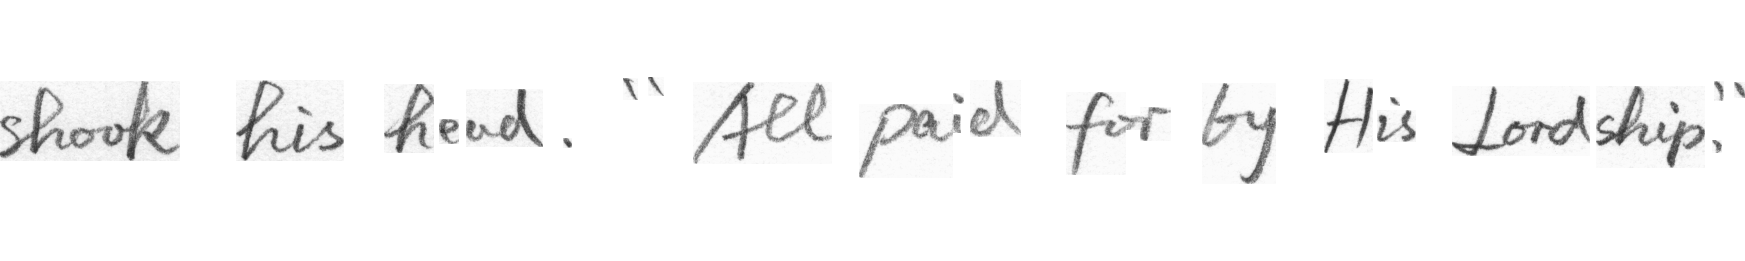 shook his head. "All paid for by His Lordship."